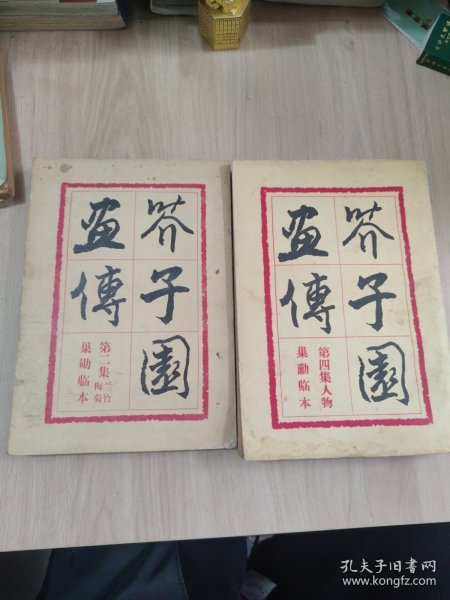 芥子園
畫傳
第二集
兰竹
梅菊
巢勋临本
芥子園
畫傳
第四集人物
巢勳临本
孔夫子旧书网
www.kongfz.com